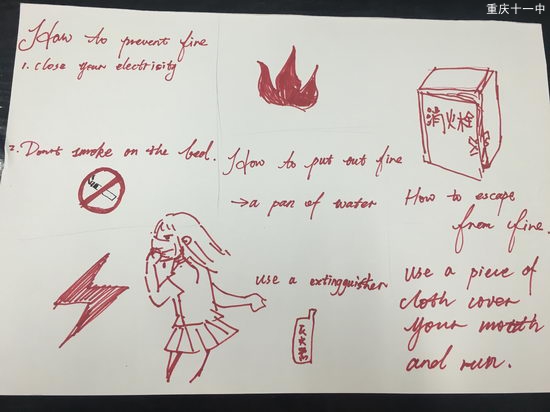 重庆十一中
How to prevent fire
1. close your electrisity
2. Don't smoke on the bed.
How to put out fire
→a pan of water
use a extingguisher
灭火器
消火栓
How to escape
from fire
use a piece of
cloth cover
your mouth
and run.